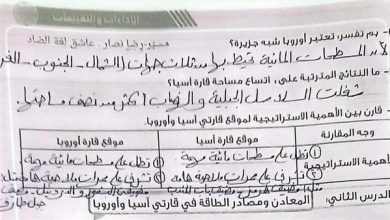 الأداءات والتقييمات
مستر/رضا نصار. عاشق لغة الضاد
بم تفسر، تعتبر أوروبا شبه جزيرة؟
لأن المسطحات المائية تحيط بها من ثلاث جهات (الشمال - الجنوب - الغرب
- ما النتائج المترتبة على: اتساع مساحة قارة آسيا؟
شغلت السلاسل الجبلية والهضاب أكثر من نصف مساحتها
- قارن بين الأهمية الاستراتيجية لموقع قارتي آسيا وأوروبا.
وجه المقارنة موقع قارة آسيا موقع قارة أوروبا
الأهمية الاستراتيجية ① تطل على مسطحات مائية مهمة ① تطل على مسطحات مائية مهمة
② تشرف على ممرات ملاحية هامة ② تشرف على ممرات ملاحية هامة مثل
مثل مضيق هرمز
الدرس الثاني: المعادن ومصادر الطاقة في قارتي آسيا وأوروبا
جبل طارق